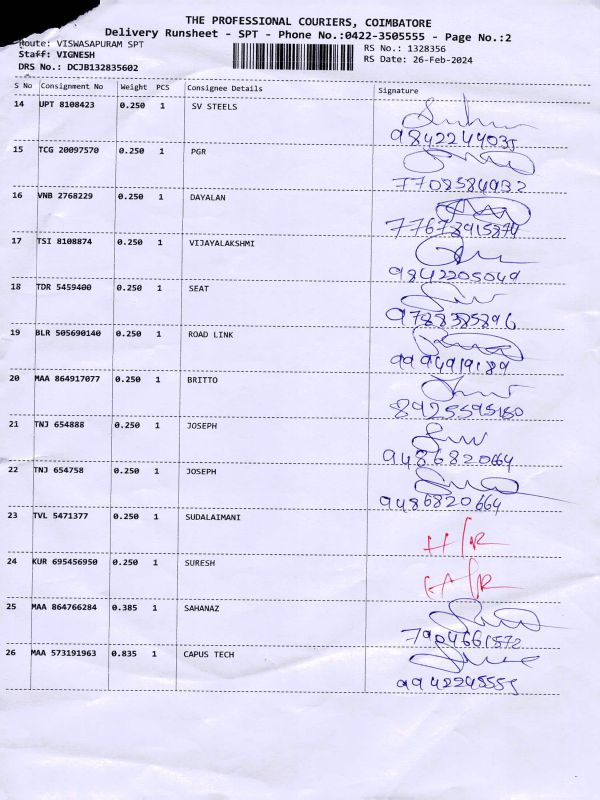 THE PROFESSIONAL COURIERS, COIMBATORE
Delivery Runsheet - SPT - Phone No.:0422-3505555 - Page No.:2
Route: VISWASAPURAM SPT
RS No.: 1328356
Staff: VIGNESH
RS Date: 26-Feb-2024
DRS No.: DCJB132835602
S No Consignment No Weight PCS Consignee Details Signature
14 UPT 8108423 0.250 1 SV STEELS
9842244035
15 TCG 20097570 0.250 1 PGR
7708584932
16 VNB 2768229 0.250 1 DAYALAN
17 TSI 8108874 0.250 1 VIJAYALAKSHMI
9842205049
18 TDR 5459400 0.250 1 SEAT
9788385896
19 BLR 505690140 0.250 1 ROAD LINK
9994919189
20 MAA 864917077 0.250 1 BRITTO
8925595180
21 TNJ 654888 0.250 1 JOSEPH
9486820664
22 TNJ 654758 0.250 1 JOSEPH
9486820664
23 TVL 5471377 0.250 1 SUDALAIMANI
24 KUR 695456950 0.250 1 SURESH
25 MAA 864766284 0.385 1 SAHANAZ
7904661872
26 MAA 573191963 0.835 1 CAPUS TECH
9942245555